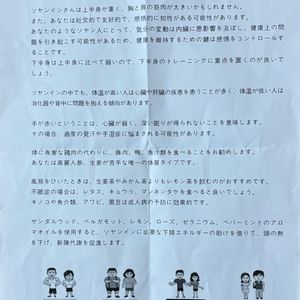 ソヤンインさんは上半身が重く、胸と肩の筋肉が大きいかもしれません。
また、あなたは社交的で友好的で、感情的に知性がある可能性があります。
ソヤンインさん人にとって、気分の変動は内臓に悪影響を及ぼし、健康上の問
題を引き起こす可能性があるため、健康を維持するための鍵は感情をコントロールす
ることです。
下半身は上半身に比べて弱いので、下半身のトレーニングに重点を置くのが良いで
しょう。
ソヤンインの中でも、体温が高い人は心臓や肝臓の疾患を患うことが多く、体温が低い人は
消化器や背中に問題を抱える傾向があります。
手が赤いということは、心臓が弱く、深い眠りが得られないことを意味します。
その場合、過度の発汗や手湿症に悩まされる可能性があります。
体に有害な鶏肉の代わりに、豚肉、鴨、魚介類を食べることをお勧めします。
あなたは高麗人参、生姜が苦手な唯一の体質タイプです。
風邪をひいたときは、生姜茶やみかん茶よりもレモン茶を飲むのがおすすめです。
不眠症の場合は、レタス、キュウリ、マンネンタケを食べると良いでしょう。
キノコや魚介類、アワビ、黒豆は成人病の予防に効果的です。
サンダルウッド、ベルガモット、レモン、ローズ、ゼラニウム、ペパーミントのアロ
マオイルを使用すると、ソヤンインに必要な下降エネルギーの助けを借りて、頭の熱
を下げ、新陳代謝を促進します。